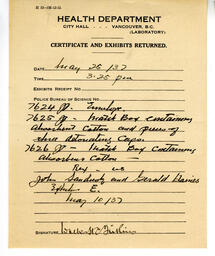 HEALTH DEPARTMENT
CITY HALL - VANCOUVER, B.C.
(LABORATORY)
CERTIFICATE AND EXHIBITS RETURNED.
DATE May 25/37
TIME 3:25 pm
EXHIBITS RECEIPT NO.
POLICE BUREAU OF SCIENCE NO.
7624 P. Envelope.
7625 P - Match Box containing
Absorbent Cotton and pieces of
Caps.
7626 P - Match Box Containing
absorbent Cotton -
Rex vs
John and Gerald
E.
May 10/37
SIGNATURE